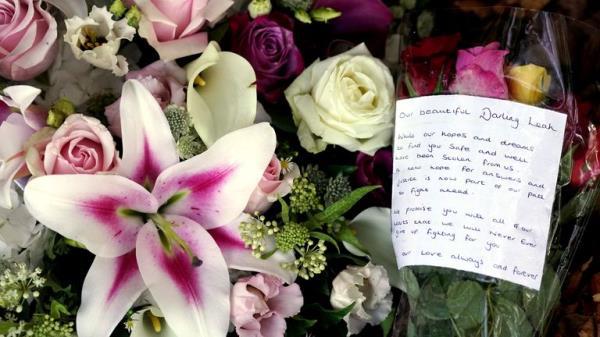 Our beautiful Darling Leah
While our hopes and dreams
to find you safe and well
have been stolen from us.
A new hope for answers and
justice is now part of our path
to fight ahead.
We promise you with all of our
hearts that we will Never Ever
give up fighting for you
Our Love always and forever